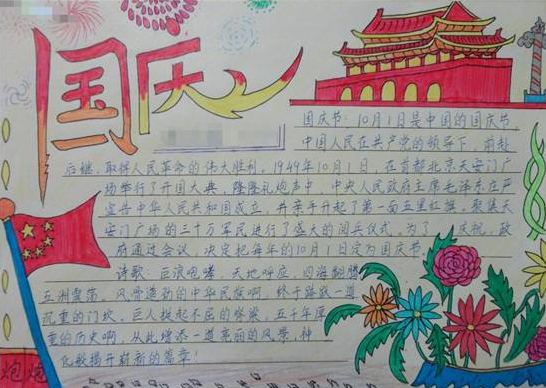 国庆
国庆节：10月1日是中国的国庆节
中国人民在共产党的领导下，前赴
后继，取得人民革命的伟大胜利。1949年10月1日，在首都北京天安门广
场举行了开国大典，隆隆礼炮声中，中央人民政府主席毛泽东庄严
宣告中华人民共和国成立，并亲手升起了第一面五星红旗，聚集天
安门广场的三十万军民进行了盛大的阅兵仪式。为了 庆祝，政
府通过会议，决定把每年的10月1日定为国庆节
诗歌：巨浪咆哮 天地呼应 四海翻腾
五洲震荡。风骨遒劲的中华民族啊，终于踏破一道
沉重的门坎，巨人挺起不屈的脊梁，五千年厚
重的历史啊，从此增添一道亮丽的风景，神
化般揭开崭新的篇章！